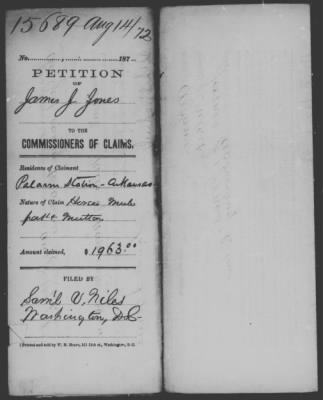 15689 Aug 14/72
No. 187
PETITION
OF
James J. Jones
TO THE
COMMISSIONERS OF CLAIMS.
Residence of Claimant
Palarm Station - Arkansas
Nature of Claim Horses Mule
pork & Mutton
Amount claimed, $ 1963.00
FILED BY
Sam'l V. Niles
Washington, D.C.
(Printed and sold by W. H. Moore, 511 11th st., Washington, D. C.